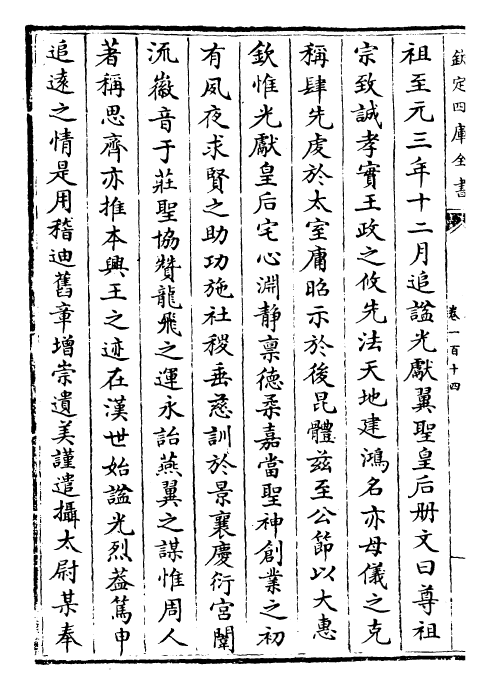 欽定四庫全書
卷一百十四
祖至元三年十二月追諡光獻翼聖皇后册文曰尊祖
宗致誠孝實王政之攸先法天地建鴻名亦母儀之克
稱肆先虔於太室庸昭示於後昆體兹至公節以大惠
欽惟光獻皇后宅心淵靜禀德柔嘉當聖神創業之初
有夙夜求賢之助功施社稷垂慈訓於景襄慶衍宫闈
流徽音于莊聖協贊龍飛之運永詒燕翼之謀惟周人
著稱思齊亦推本興王之迹在漢世始諡光烈葢篤申
追遠之情是用稽迪舊章增崇遺美謹遣攝太尉某奉